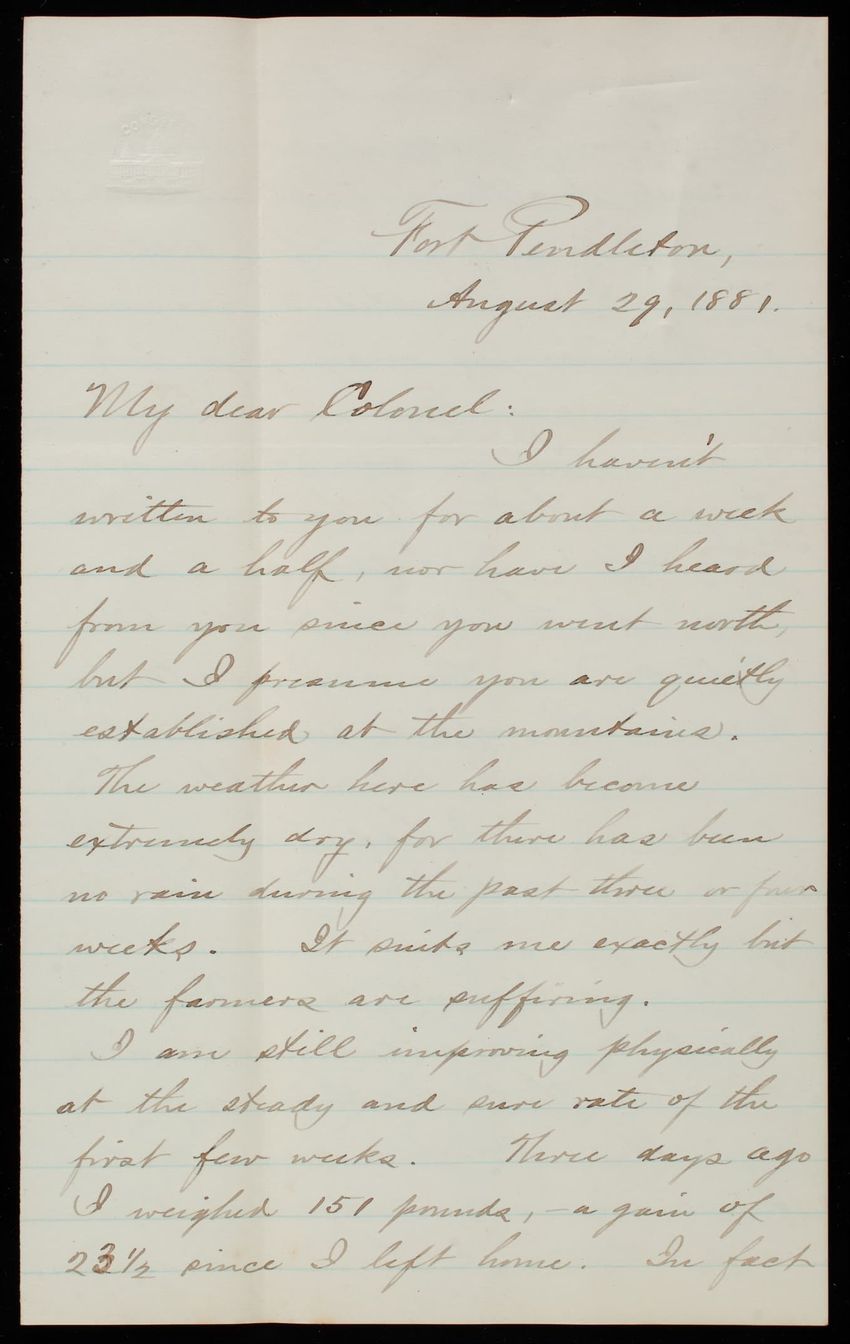 CONGRESS
Fort Pendleton,
August 29, 1881.
My dear Colonel:
I haven't
written to you for about a week
and a half, nor have I heard
from you since you went north,
but I presume you are quietly
established at the mountains.
The weather here has become
extremely dry, for there has been
no rain during the past three or four
weeks. It suits me exactly but
the farmers are suffering.
I am still improving physically
at the steady and sure rate of the
first few weeks. Three days ago
I weighed 151 pounds, - a gain of
23 1/2 since I left home. In fact